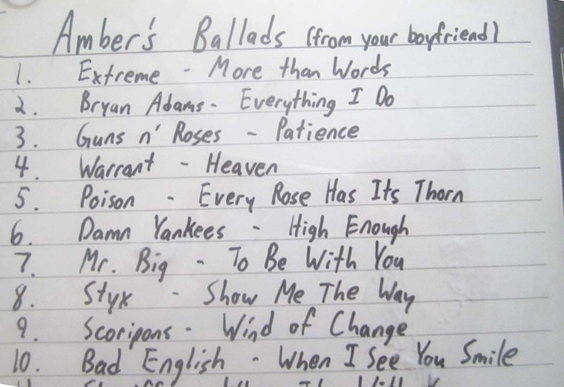 Amber's Ballads (from your boyfriend)
1. Extreme - More than Words
2. Bryan Adams - Everything I Do
3. Guns n' Roses - Patience
4. Warrant - Heaven
5. Poison - Every Rose Has Its Thorn
6. Damn Yankees - High Enough
7. Mr. Big - To Be With You
8. Styx - Show Me The Way
9. Scoripons - Wind of Change
10. Bad English - When I See You Smile